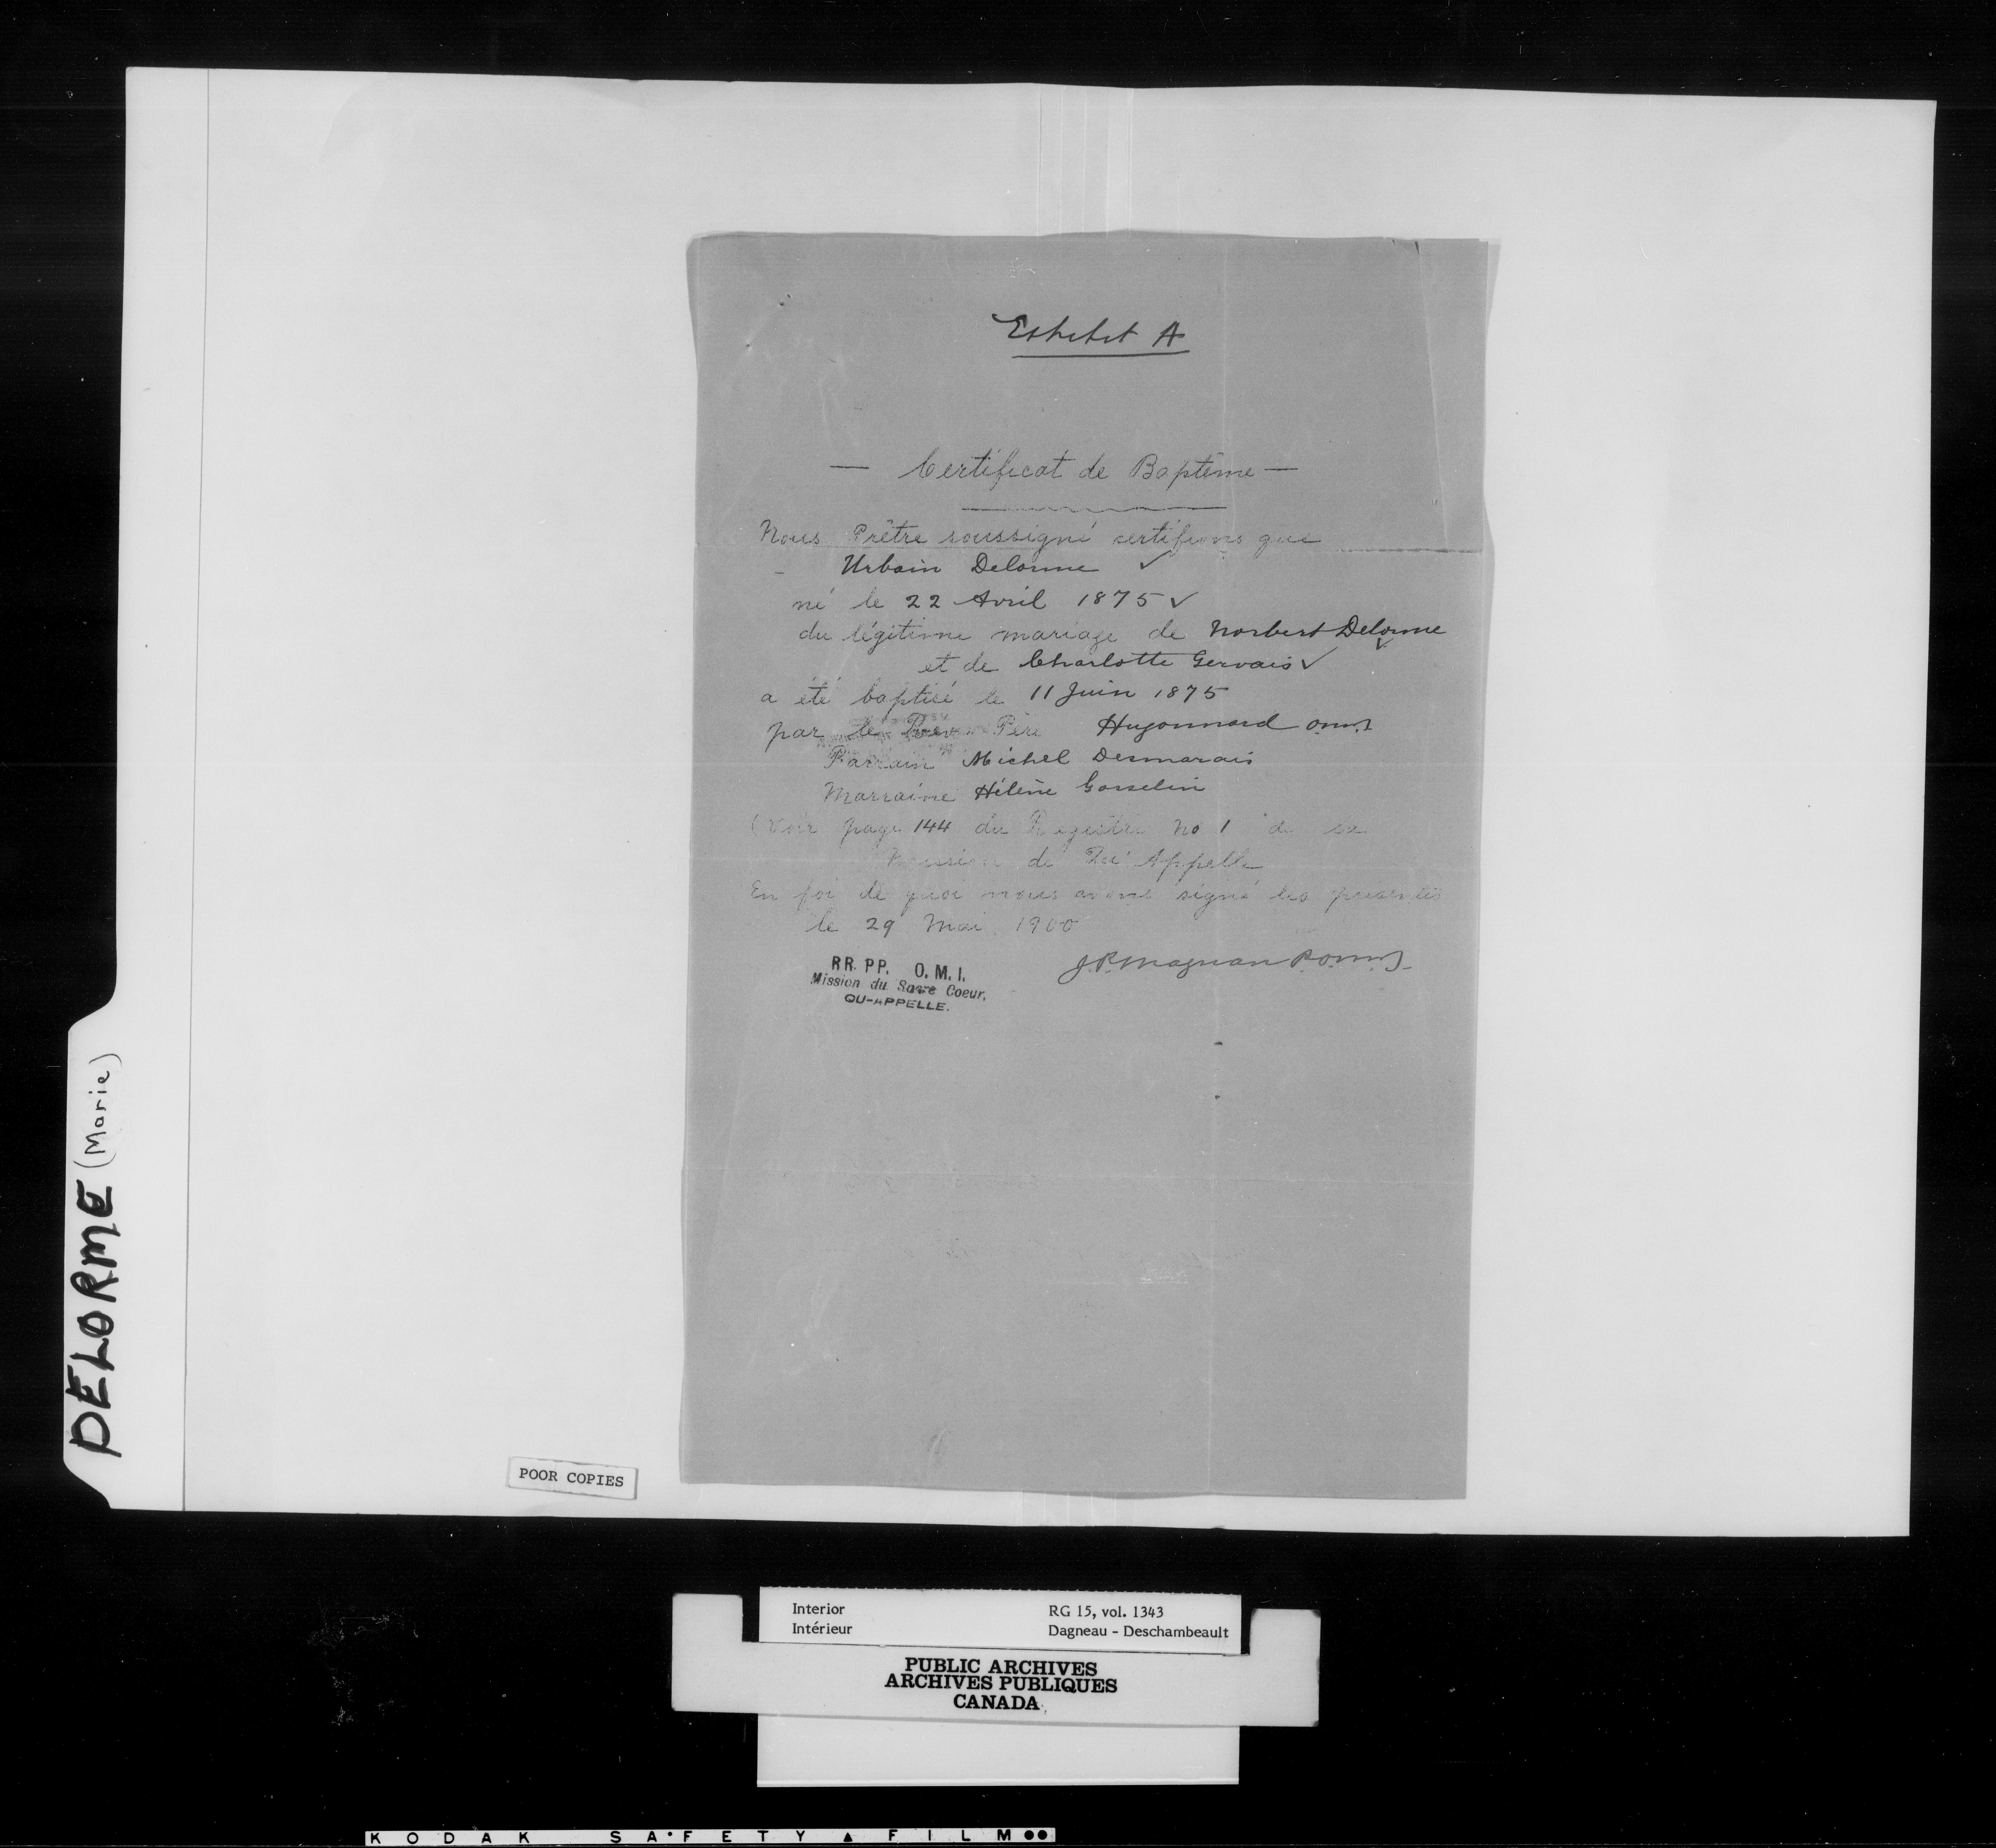 Exhibit A
— Certificat de Baptême —
Nous Prêtre soussigné certifions que
Urbain Delorme ✓
né le 22 Avril 1875 ✓
du légitime mariage de Norbert Delorme ✓
et de Charlotte Gervais ✓
a été baptisé le 11 Juin 1875
par le Rev. Père Hugonnard O.M.I.
Parrain Michel Desmarais
Marraine Hélène Gosselin
(Voir page 144 du Registre No 1 de la
Mission de Qu'Appelle
En foi de quoi nous avons signé les présentes
le 29 Mai 1900
J.P. Magnan P. O.M.I.
RR. PP. O. M. I.
Mission du Sacre Coeur,
QU-APPELLE.
DELORME (Marie)
POOR COPIES
Interior
Intérieur
RG 15, vol. 1343
Dagneau - Deschambeault
PUBLIC ARCHIVES
ARCHIVES PUBLIQUES
CANADA
KODAK SAFETY FILM